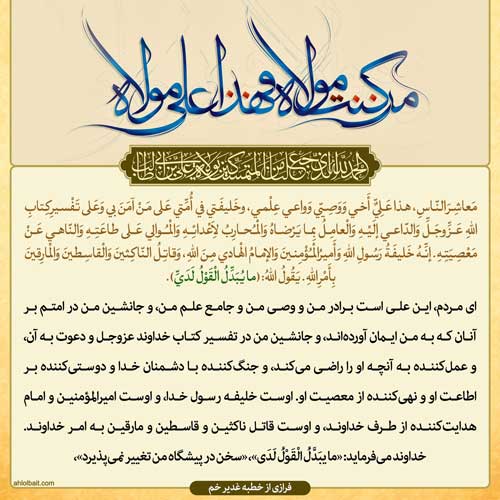 من کنت مولاه فهذا علی مولاه
الحمد لله الذی جعلنا من المتمسکین بولایة علی بن ابی طالب
مَعاشِرَ النّاسِ، هذا عَلِیٌّ أَخی وَوَصِیّی وَواعی عِلْمی، وَخَلیفَتی فی أُمَّتی عَلی مَنْ آمَنَ بی وَعَلی تَفْسیرِ کِتابِ
اللهِ عَزَّوَجَلَّ وَالدّاعی إِلَیْهِ وَالْعامِلُ بِما یَرْضاهُ وَالْمُحارِبُ لِأَعْدائِهِ وَالْمُوالی عَلی طاعَتِهِ وَالنّاهی عَنْ
مَعْصِیَتِهِ. إِنَّهُ خَلیفَةُ رَسُولِ اللهِ وَأَمیرُالْمُؤْمِنینَ وَالْإمامُ الْهادی مِنَ اللهِ، وَقاتِلُ النّاکِثینَ وَالْقاسِطینَ وَالْمارِقینَ
بِأَمْرِاللهِ. یَقُولُ اللهُ: (ما یُبَدَّلُ الْقَوْلُ لَدَیَّ).
ای مردم، این علی است برادر من و وصی من و جامع علم من، و جانشین من در امتم بر
آنان که به من ایمان آورده‌اند، و جانشین من در تفسیر کتاب خداوند عزوجل و دعوت به آن،
و عمل‌کننده به آنچه او را راضی می‌کند، و جنگ‌کننده با دشمنان خدا و دوستی‌کننده بر
اطاعت او و نهی‌کننده از معصیت او. اوست خلیفه رسول خدا، و اوست امیرالمؤمنین و امام
هدایت‌کننده از طرف خداوند، و اوست قاتل ناکثین و قاسطین و مارقین به امر خداوند.
خداوند می‌فرماید: «ما یبَدَّلُ الْقَوْلُ لَدَی»، «سخن در پیشگاه من تغییر نمی‌پذیرد»،
فرازی از خطبه غدیر خم
ahlolbait.com